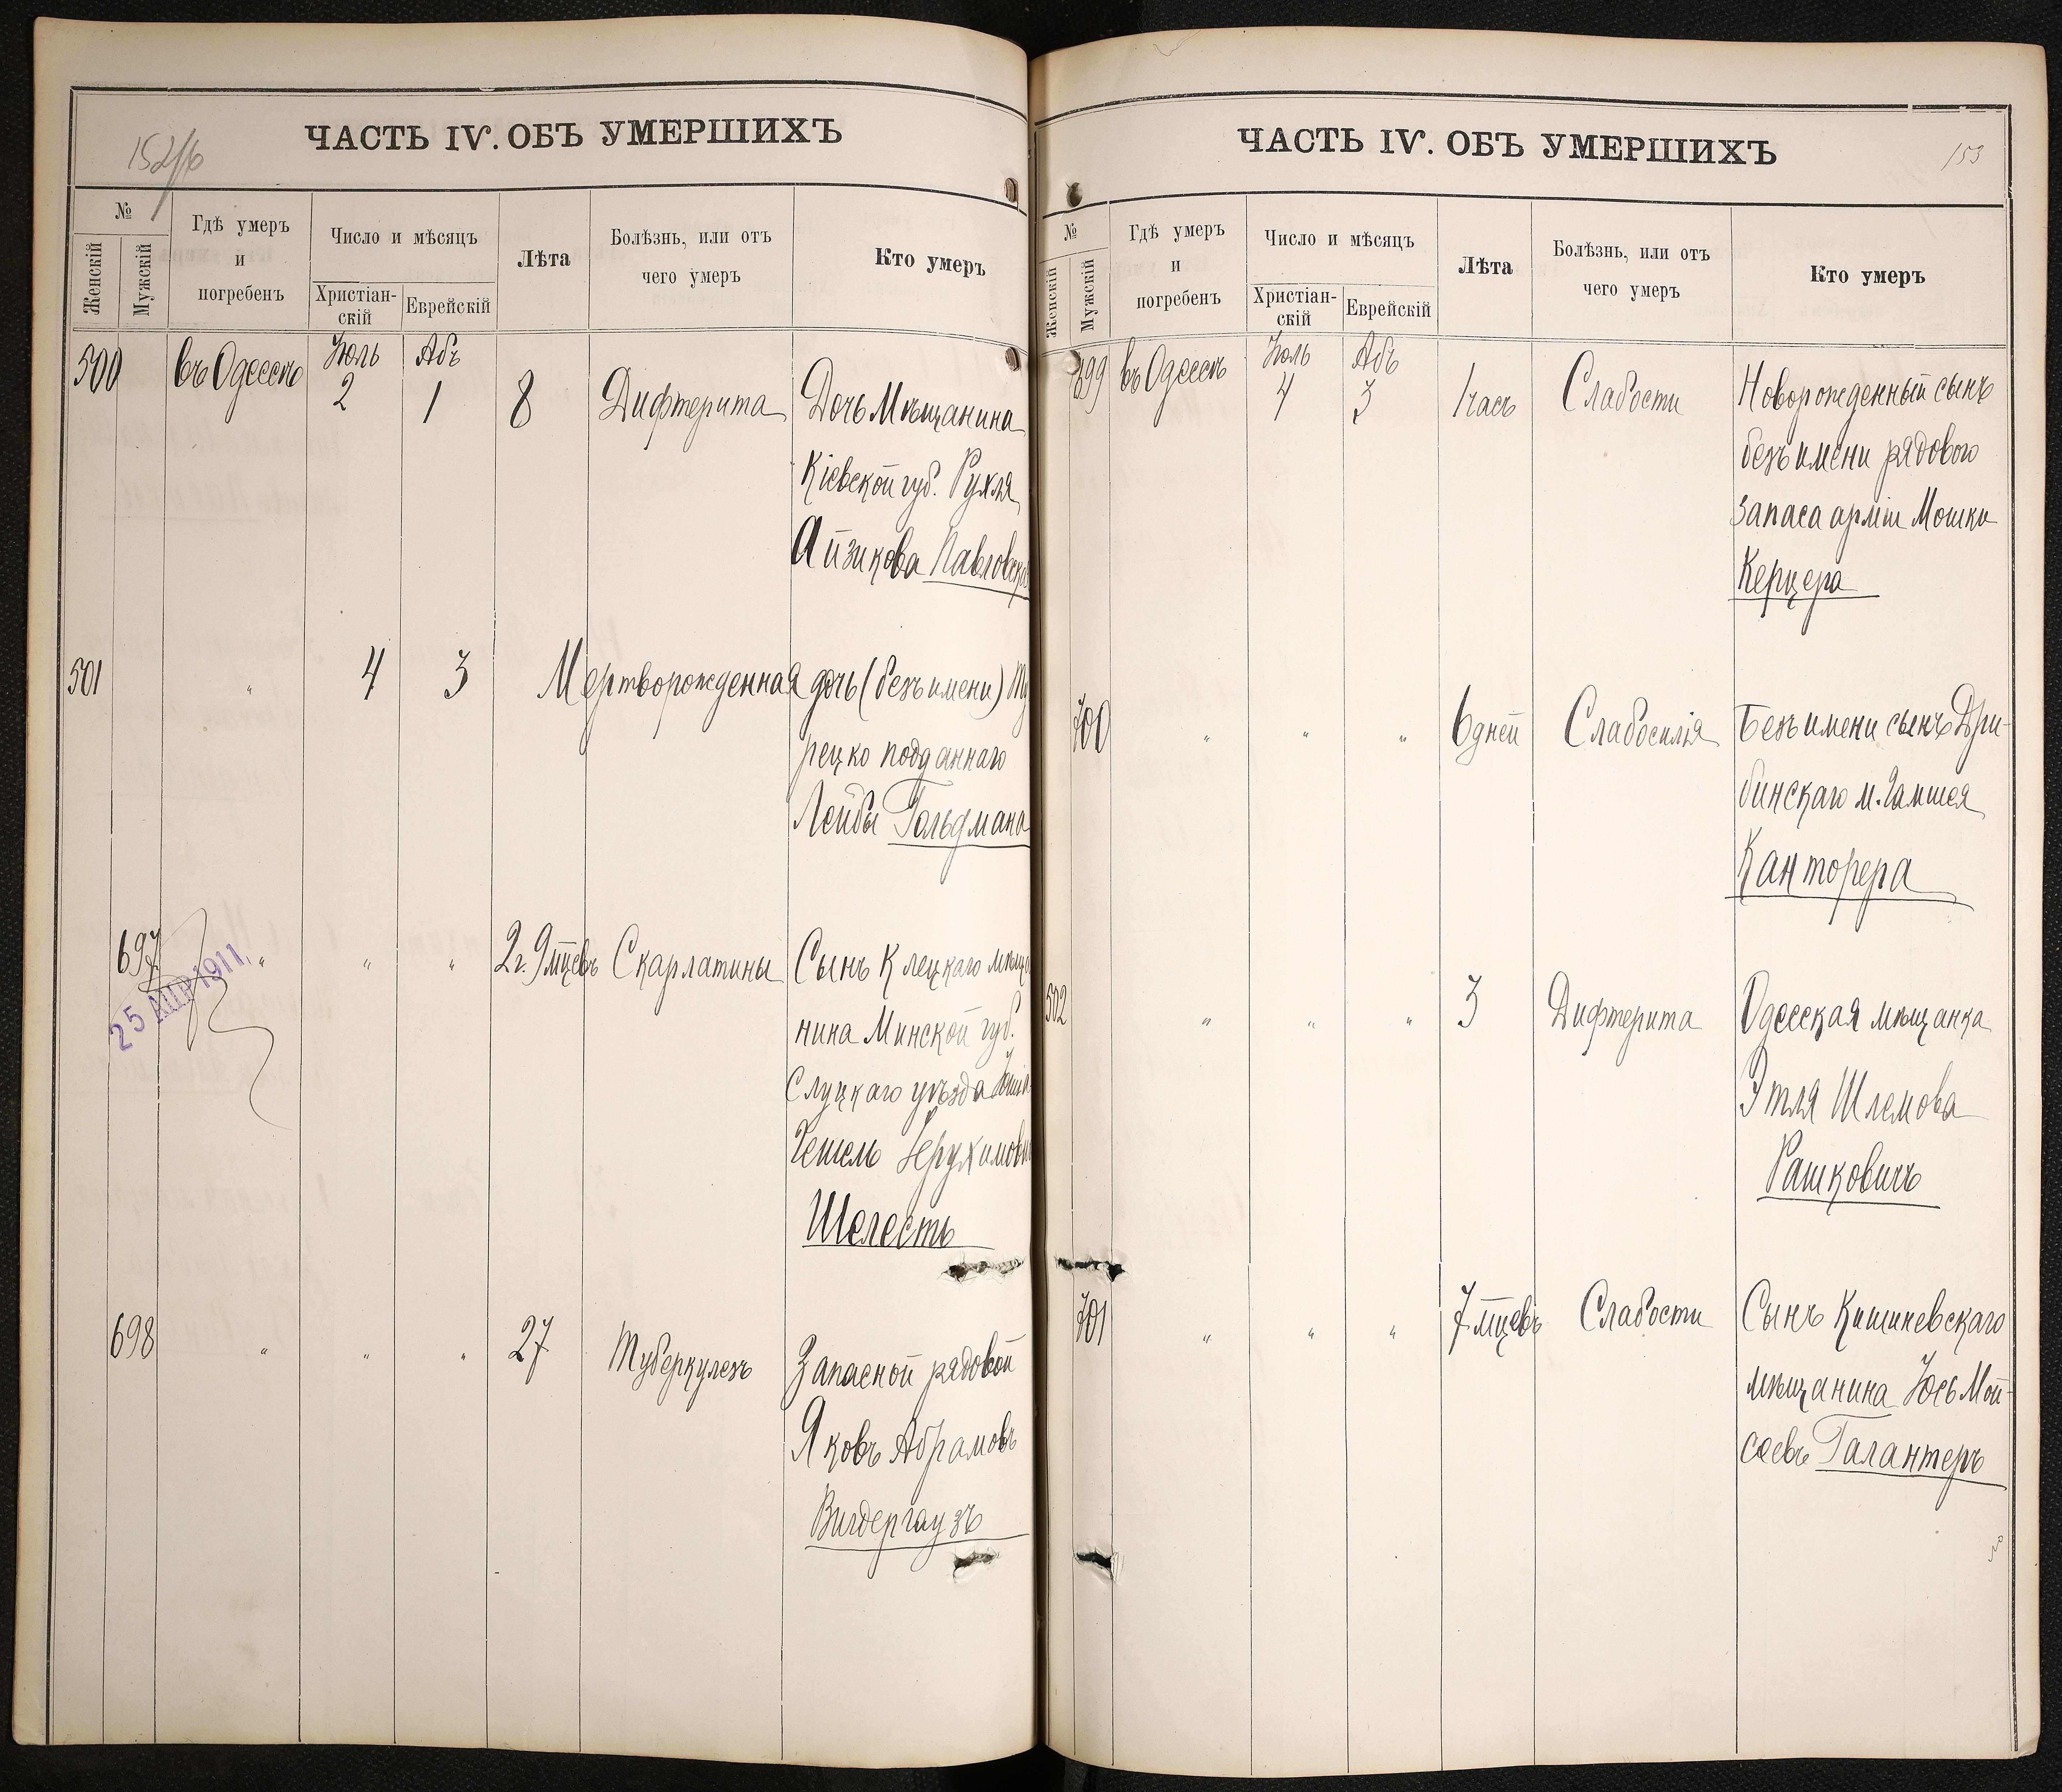 152/б
ЧАСТЬ IV. ОБЪ УМЕРШИХЪ
№
Женскій
Мужскій
Гдѣ умеръ
и
погребенъ
Число и мѣсяцъ
Христіан-
скій
Еврейскій
Лѣта
Болѣзнь, или отъ
чего умеръ
Кто умеръ
500 въ Одессѣ Іюль 2 Абъ 1 8 Дифтерита Дочь Мѣщанина
Кіевской губ. Рухля
Айзикова Павловск
501 " 4 3 Мертворожденная дочь (безъ имени) Ту
рецко подданнаго
Лейбы Гольдмана
697 " " " 2 г. 9 мцевъ Скарлатины Сынъ Клецкаго мѣща
25 АПР 1911
нина Минской губ.
Слуцкаго уѣзда
Герухимов
Шелесть
698 " " " 27 Туберкулезъ Запасной рядовой
Яковъ Абрамовъ
Вигдергаузъ
153
ЧАСТЬ IV. ОБЪ УМЕРШИХЪ
№
Женскій
Мужскій
Гдѣ умеръ
и
погребенъ
Число и мѣсяцъ
Христіан-
скій
Еврейскій
Лѣта
Болѣзнь, или отъ
чего умеръ
Кто умеръ
699 въ Одессѣ Іюль 4 Абъ 3 1 часъ Слабости Новорожденный сынъ
безъ имени рядового
запаса арміи Мошки
Керцера
700 " " " 6 дней Слабосилія Безъ имени сынъ Дри-
бинскаго м. Гамшея
Канторера
502 " " " 3 Дифтерита Одесская мѣщанка
Этля Шлемова
Рашковичъ
701 " " " 7 мцевъ Слабости Сынъ Кишиневскаго
мѣщанина Іось Мой-
сеевъ Галантеръ